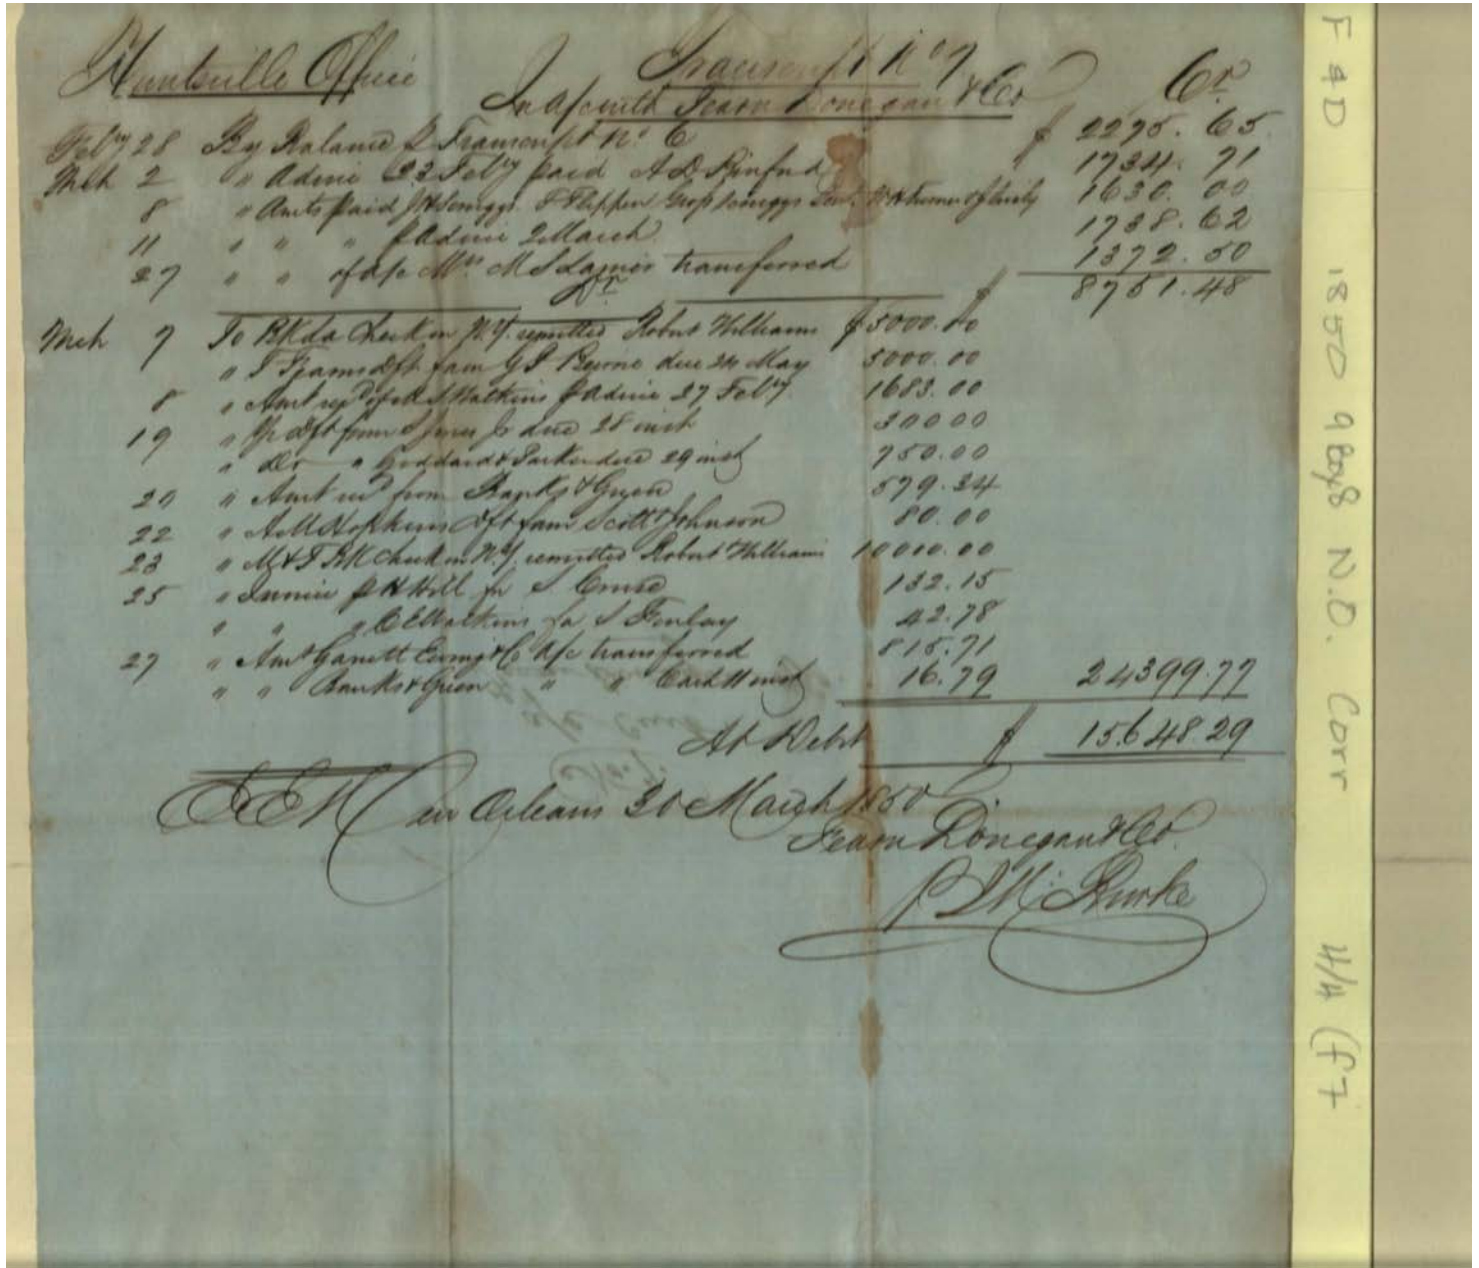 Huntsville Office Transcript No 7
In a/c with Fearn Donegan & Co Cr
Feby 28 By Balance p Transcript No 6 $ 2275.65
Mch 2 " Advice 23 Feby paid A D 1734.71
8 " Amts paid J H Scruggs F Flippen Scruggs 1630.00
11 " " " p Advice 2 March 1738.62
27 " " of a/c Mrs M S Lanier transferred 1372.50
Dr $ 8751.48
Mch 7 To Bk Check on N.Y. remitted Robert Williams $ 5000.00
" dft fam G P Beirne due 24 May 5000.00
8 " Amt of S Watkins p Advice 27 Feby 1683.00
19 " dft from S Jones Jr due 28 inst 300 00
" Do " Goddard & Parker due 29 inst 750.00
20 " Amt recd from Banks & Green 579.34
22 " A M Hopkins dft fam Scott & Johnson 80.00
23 " M & F Bk Check on N.Y. remitted Robert Williams 10000.00
25 " H Hill for S Cruse 132.15
" " " Watkins for S Finlay 42.78
27 " Amt Garrett Ewing & Co a/c transferred 815.71
" " Banks & Green " " inst 16.79 24399.77
At Debit $ 15.648.29
E E New Orleans 30 March 1850
Fearn Donegan & Co.
P Burke
F & D 1850 9 Boy8 N.O. Corr 4/4 (f7